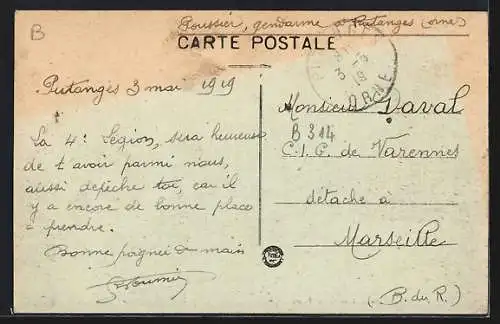 B
Poussier, gendarme à Putanges (orne)
CARTE POSTALE
Putanges 3 mai 1919
3 -5
19
ORNE
La 4e Légion, sera heureuse
de t avoir parmi nous,
aussi depêche toi, car il
y a encore de bonne place
à prendre.
Bonne poignée de main
Monsieur Daval
B 314
C.I.G. de Varennes
détaché à
Marseille
(B. du R.)